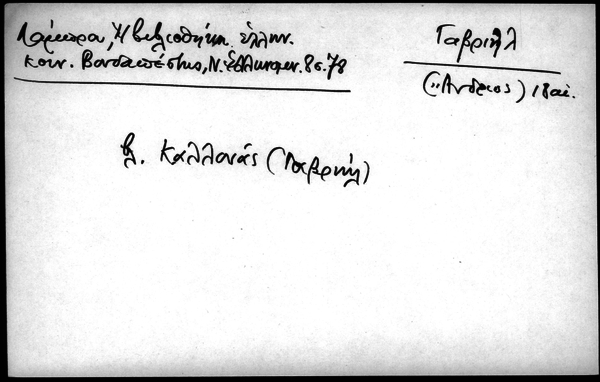 Λάμπρου, Ἡ βιβλιοθήκη ἑλλην.
κοιν. Βουδαπέστης, Ν. Ἑλληνομν. 8σ. 78
Γαβριήλ
(Ἄνδριος) 18 αἰ.
βλ. Καλλονάς (Γαβριήλ)